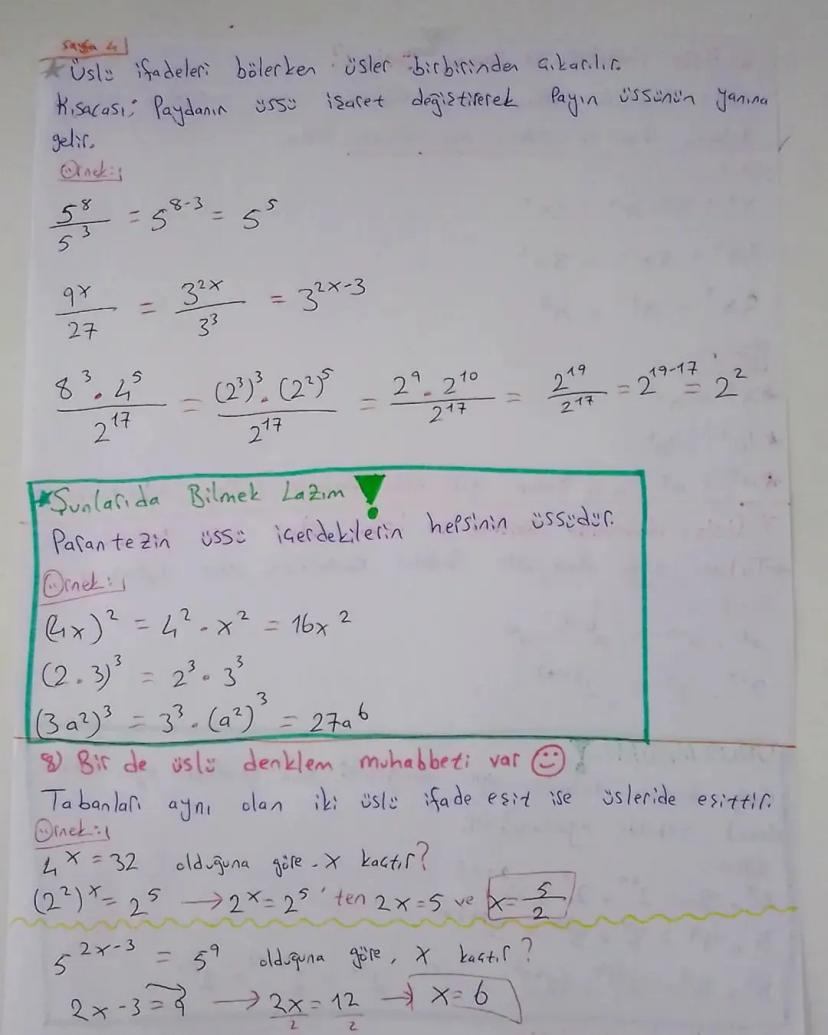 Sayfa 4
★Üslü ifadeleri bölerken üsler birbirinden çıkarılır.
Kısacası; Paydanın üssü işaret değiştirerek Payın üssünün yanına
gelir.
Örnek:
5⁸/5³ = 5⁸⁻³ = 5⁵
9ˣ/27 = 3²ˣ/3³ = 3²ˣ⁻³
8³.4⁵/2¹⁷ = (2³)³.(2²)⁵/2¹⁷ = 2⁹.2¹⁰/2¹⁷ = 2¹⁹/2¹⁷ = 2¹⁹⁻¹⁷ = 2²
★Şunlarıda Bilmek Lazım!
Parantezin üssü içerdekilerin hepsinin üssüdür.
Örnek:
(4x)² = 4².x² = 16x²
(2.3)³ = 2³.3³
(3a²)³ = 3³.(a²)³ = 27a⁶
8) Bir de üslü denklem muhabbeti var ☺
Tabanları aynı olan iki üslü ifade eşit ise üsleride eşittir.
Örnek:
4ˣ = 32 olduğuna göre. x kaçtır?
(2²)ˣ = 2⁵ → 2ˣ = 2⁵'ten 2x = 5 ve x = 5/2
5²ˣ⁻³ = 5⁹ olduğuna göre, x kaçtır?
2x-3 = 9 → 2x/2 = 12/2 → x = 6